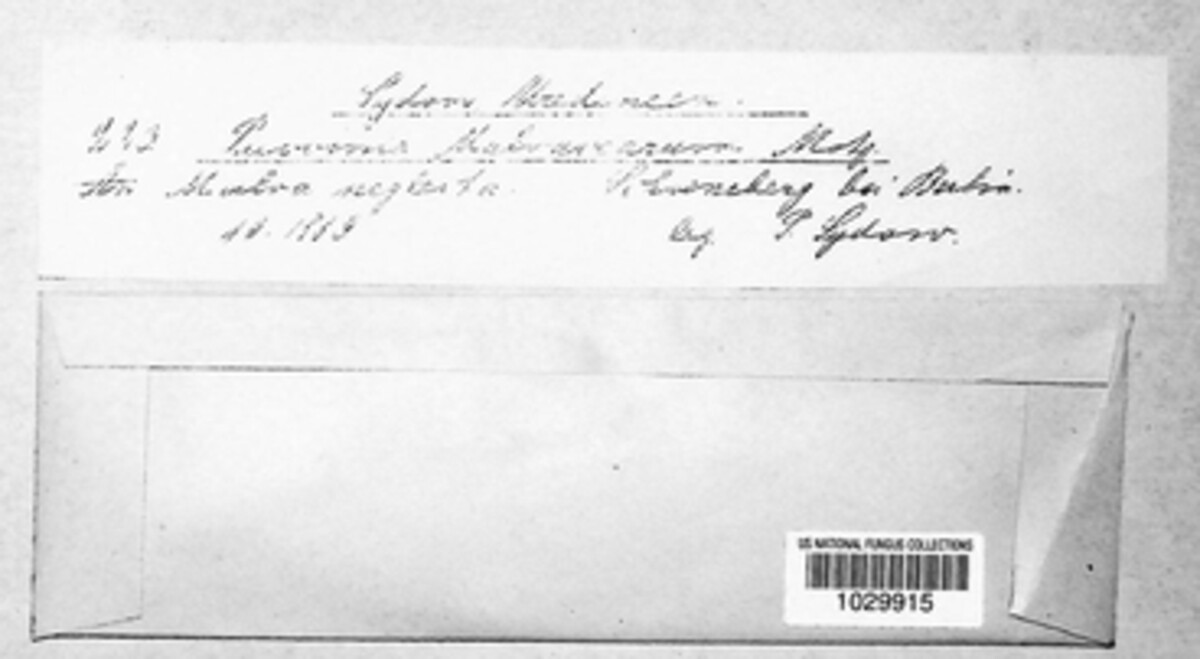 Sydow Uredineen.
223 Puccinia Malvacearum Mtg.
An Malva neglecta. Schöneberg bei Berlin.
10. 1889 leg. P. Sydow.
US NATIONAL FUNGUS COLLECTIONS
1029915